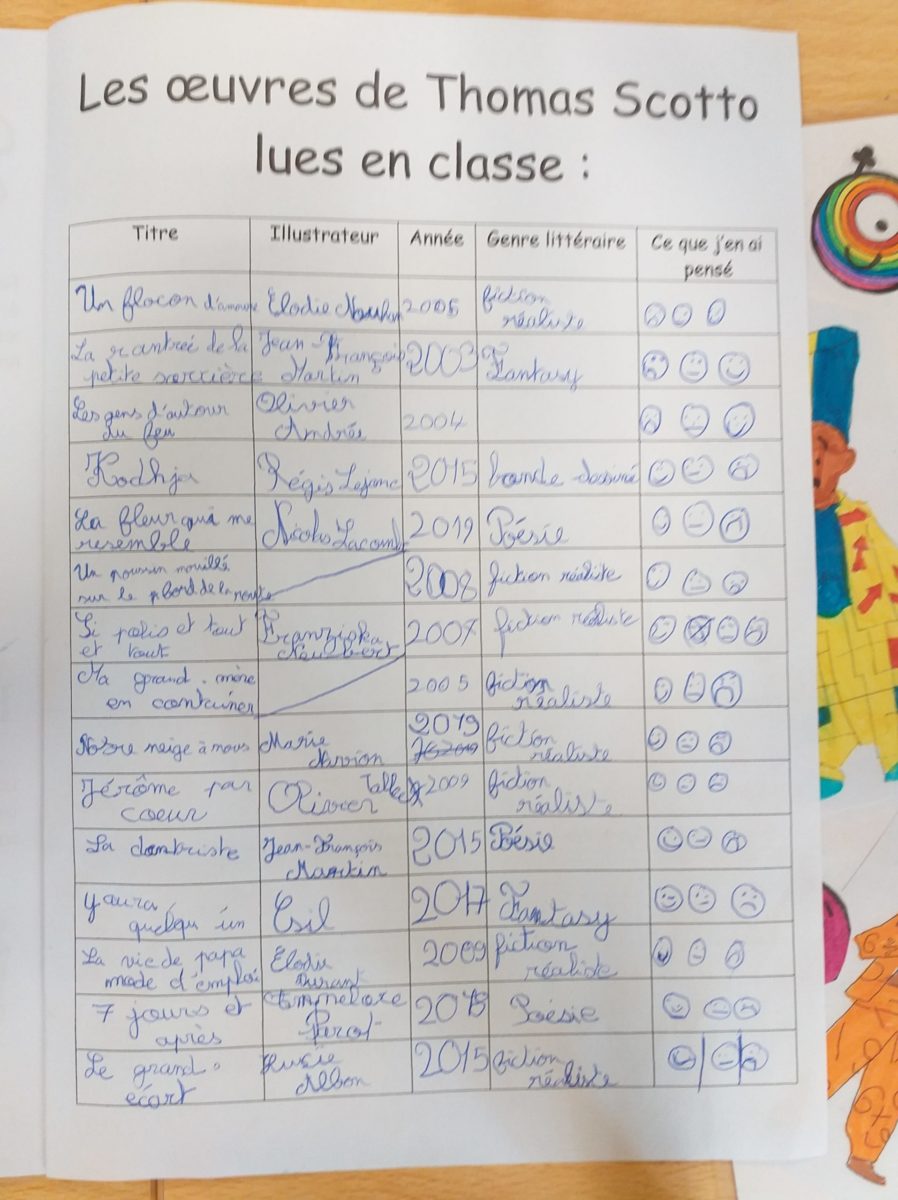 Les œuvres de Thomas Scotto
lues en classe :
Titre Illustrateur Année Genre littéraire Ce que j'en ai
pensé
Un flocon d'amour Elodie 2005 fiction
réaliste
La rantreé de la Jean-François 2003 Fantasy
petite sorcière Martin
Les gens d'autour Olivier 2004
du feu Andrée
Kodhja Régis Lejonc 2015 bande dessiné
La fleur qui me Nicolas Lacombe 2019 Poésie
resemble
Un poussin mouillé 2008 fiction réaliste
sur le bord de la
Si polis et tout Franziska 2007 fiction réaliste
et tout Neubert
Ma grand-mère 2005 fiction
en container réaliste
Notre neige à nous Marie 2019 fiction
réaliste
Jérôme par Olivier Tallec 2009 fiction
coeur réaliste
La dentriste Jean-François 2015 Poésie
Martin
Y aura Csil 2017 Fantasy
quelqu un
La vie de papa Elodie 2009 fiction
mode d'emploi Durant réaliste
7 jours et 2018 Poésie
après
Le grand- 2015 fiction
écart Albon réaliste